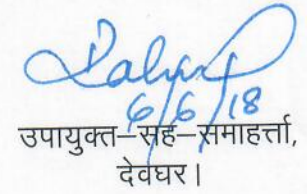 6/6/18
उपायुक्त–सह–समाहर्त्ता,
देवघर।